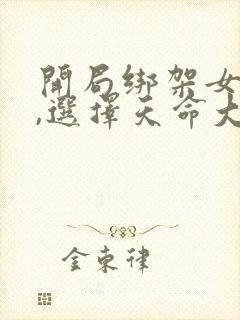 開局綁架女
,選擇天命大
金束律